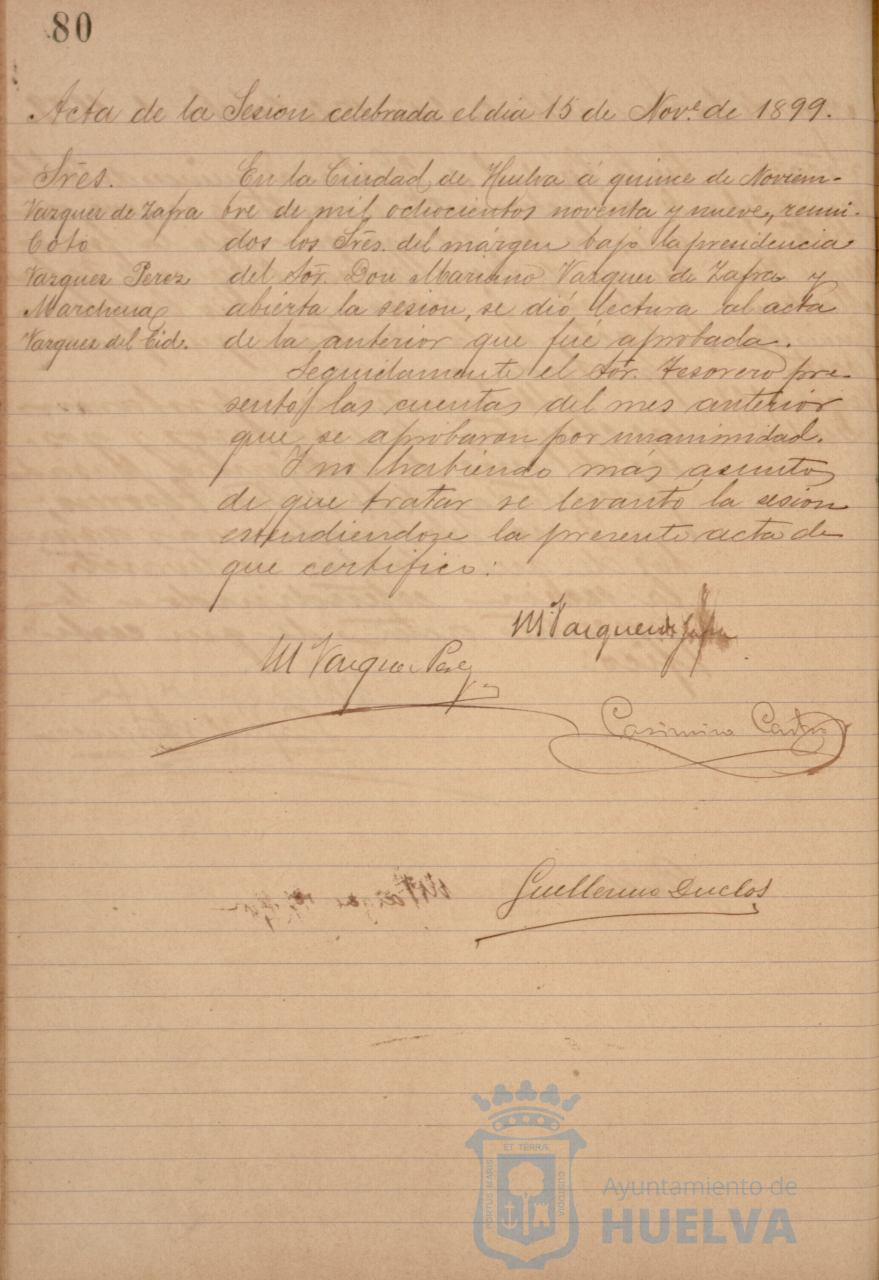 80
Acta de la Sesion celebrada el dia 15 de Nove. de 1899.
Sres.
Vazquez de Zafra
Coto
Vazquez Perez
Marchena
Vazquez del Cid.
En la Ciudad de Huelva á quince de Noviem-
bre de mil ochocientos noventa y nueve, reuni-
dos los Sres. del márgen bajo la presidencia
del Sor. Don Mariano Vazquez de Zafra y
abierta la sesion, se dió lectura al acta
de la anterior que fué aprobada.
Seguidamente el Sor. Tesorero pre-
sentó las cuentas del mes anterior
que se aprobaron por unanimidad.
Y no habiendo más asuntos
de que tratar se levantó la sesion
estendiendose la presente acta de
que certifico:
M Vazquez de Zafra
M Vazquez Perez
Casimiro Castro
Guillermo Duclos
ET TERRÆ
PORTUS MARIS
CUSTODIA
Ayuntamiento de
HUELVA